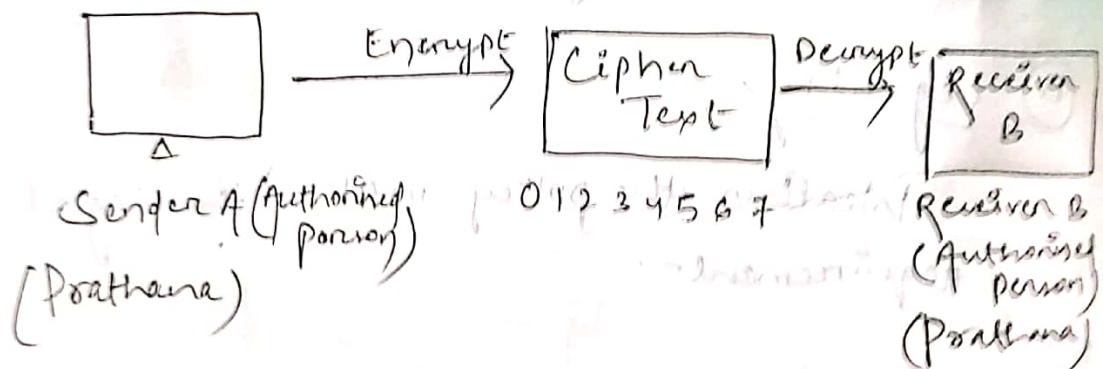 Encrypt
Cipher
Text
Decrypt
Receiver
B
Sender A (Authorised
person)
(Prathana)
0 1 2 3 4 5 6 7
Receiver B
(Authorised
person)
(Prathana)